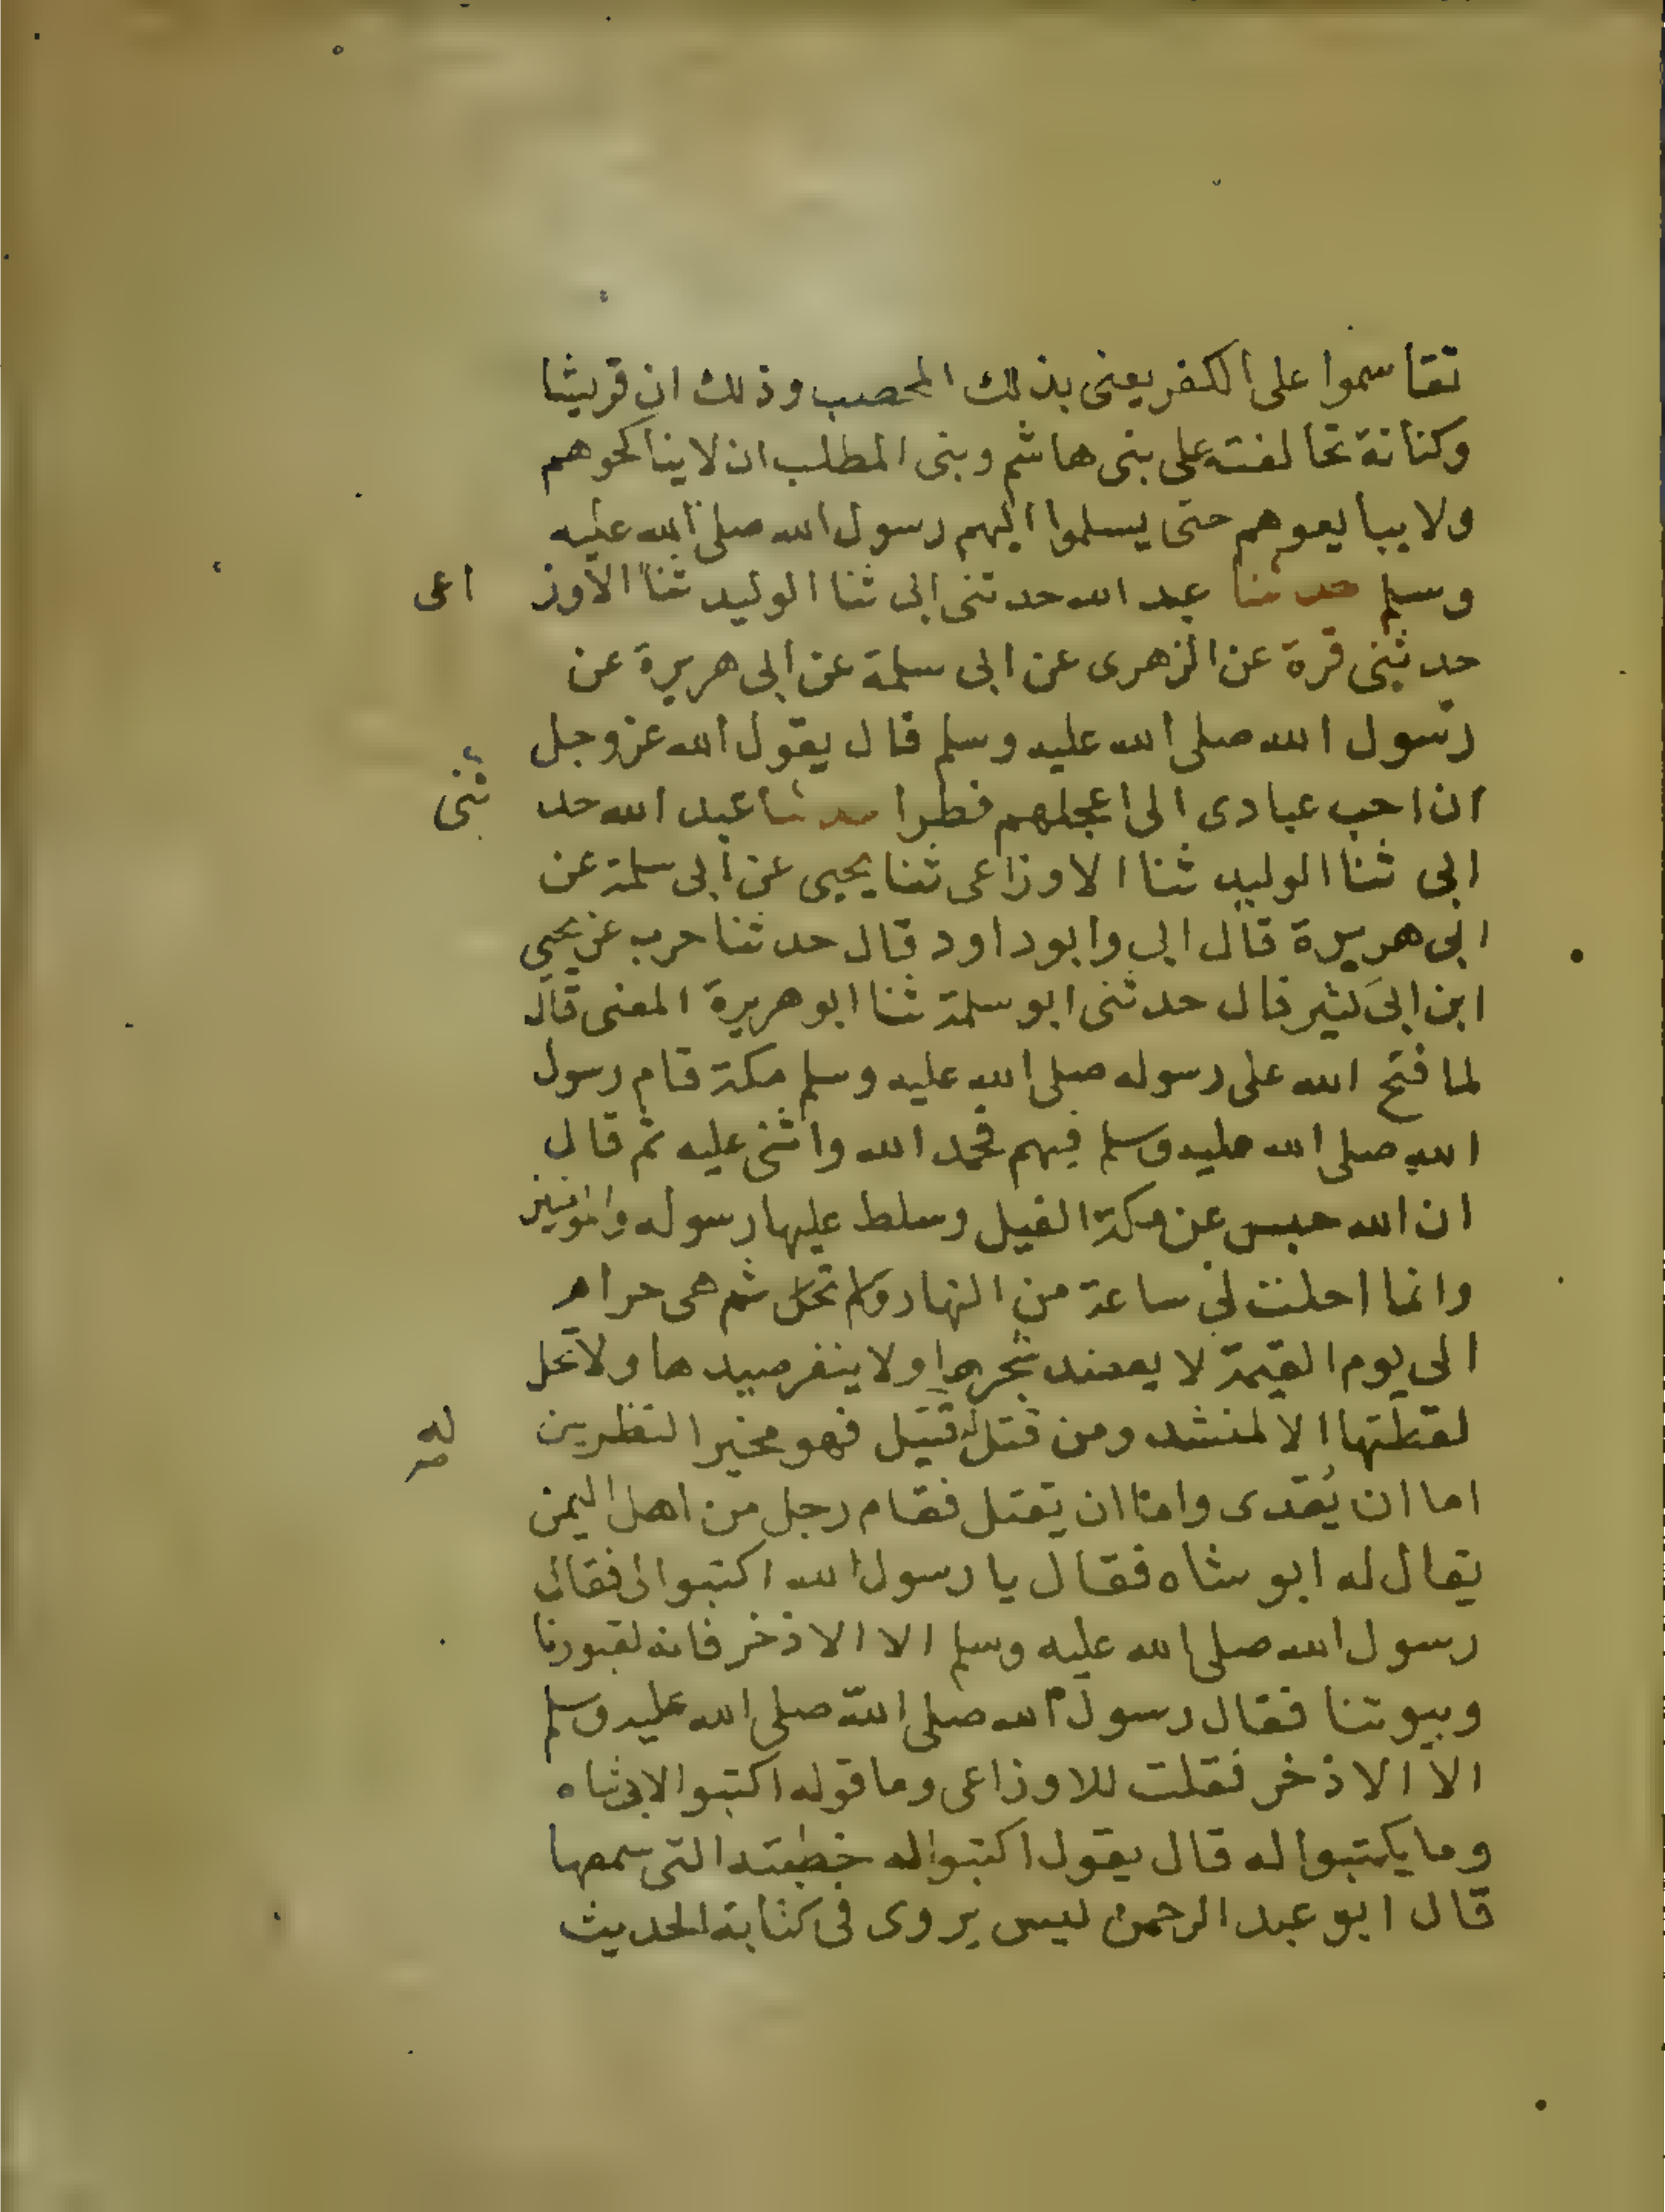 تقاسموا على الكفر يعنى بذلك المحصب وذلك ان قريشا
وكنانة تحالفت على بنى هاشم وبنى المطلب ان لا يناكحوهم
ولا يبايعوهم حتى يسلموا اليهم رسول الله صلى الله عليه
وسلم حدثنا عبد الله حدثنى ابى ثنا الوليد ثنا الأوز اعى
حدثنى قرة عن الزهرى عن ابى سلمة عن ابى هريرة عن
رسول الله صلى الله عليه وسلم قال يقول الله عز وجل
ان احب عبادى الى اعجلهم فطرا حدثنا عبد الله حد ثنى
ابى ثنا الوليد ثنا الاوزاعى ثنا يحيى عن ابى سلمة عن
ابى هريرة قال ابى وابو داود قال حدثنا حرب عن يحيى
ابن ابى كثير قال حدثنى ابو سلمة ثنا ابو هريرة المعنى قال
لما فتح الله على رسوله صلى الله عليه وسلم مكة قام رسول
الله صلى الله عليه وسلم فيهم فحمد الله واثنى عليه ثم قال
ان الله حبس عن مكة الفيل وسلط عليها رسوله والمؤمنين
وانما احلت لى ساعة من النهار ولم تحل ثم هى حرام
الى يوم القيمة لا يعضد شجرها ولا ينفر صيدها ولا تحل
لقطتها الا لمنشد ومن قتل قتيل فهو مخير النظرين
له
اما ان يفدى واما ان يقتل فقام رجل من اهل اليمن
يقال له ابو شاه فقال يا رسول الله اكتبوا لى فقال
رسول الله صلى الله عليه وسلم الا الاذخر فانه لقبورنا
وبيوتنا فقال رسول الله صلى الله صلى الله عليه وسلم
الا الاذخر فقلت للاوزاعى وما قوله اكتبوا لابى شاه
وما يكتبوا له قال يقول اكتبوا له خطبته التى سمعها
قال ابو عبد الرحمن ليس يروى فى كتابة الحديث